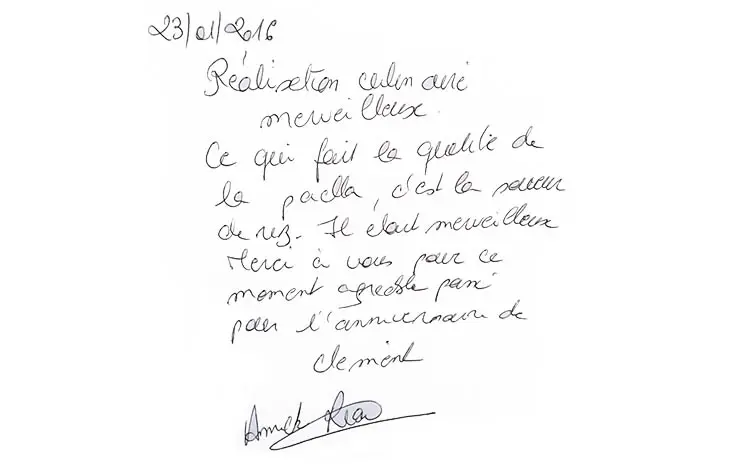 23/01/2016
Réalisation culinaire
merveilleux.
Ce qui fait la qualité de
la paella, c'est la saveur
de riz. Il était merveilleux
Merci à vous pour ce
moment agréable passé
pour l'anniversaire de
Clement
Annick